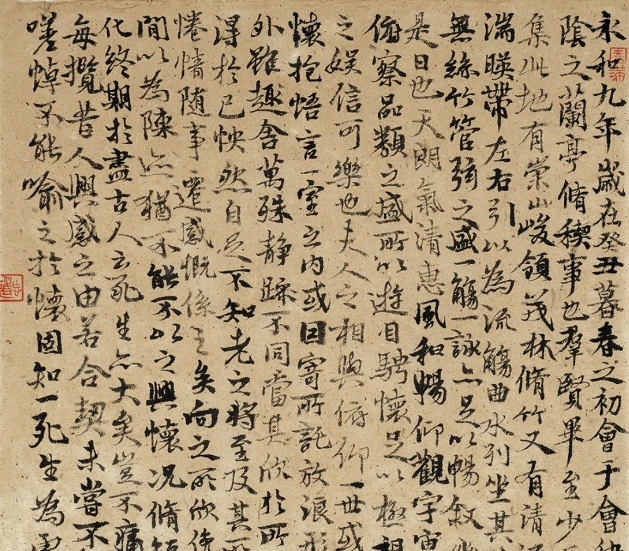 永和九年歲在癸丑暮春之初會于會
陰之蘭亭脩稧事也羣賢畢至少
集此地有崇山峻領茂林脩竹又有清
湍暎帶左右引以為流觴曲水列坐其
無絲竹管弦之盛一觴一詠亦足以暢叙
是日也天朗氣清惠風和暢仰觀宇宙
俯察品類之盛所以遊目騁懷足以極視
之娱信可樂也夫人之相與俯仰一世或
懷抱悟言一室之内或因寄所託放浪形
外雖趣舍萬殊静躁不同當其欣於所
得於己怏然自足不知老之將至及其
惓情随事遷感慨係之矣向之所欣俛
間以為陳迹猶不能不以之興懷况脩
化終期於盡古人云死生亦大矣豈不痛
每攬昔人興感之由若合契未嘗不
嗟悼不能喻之於懷固知一死生為